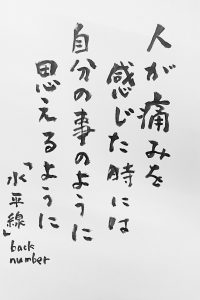 人が痛みを
感じた時には
自分の事のように
思えるように
「水平線」
back
number